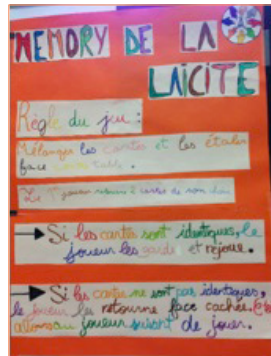 MEMORY DE LA
LAÏCITE
Règle du jeu :
Mélanger les cartes et les étaler
face contre table.
Le 1er joueur retourne 2 cartes de son choix
→ Si les cartes sont identiques, le
joueur les garde et rejoue.
→ Si les cartes ne sont pas identiques,
le joueur les retourne face cachée.
au joueur suivant de jouer.